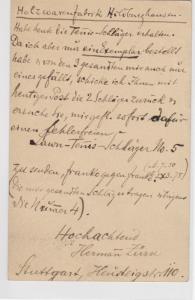 Holzwarenfabrik Hildburghausen.
Habe heute die Tenis-Schläger erhalten.
Da ich aber nur ein Exemplar bestellt
habe u. von den 3 gesandten mir auch nur
eines gefällt, schicke ich Ihnen mit
heutiger Post die 2 Schläger zurück u.
ersuche Sie, mir gefl. sofort dafür
einen fehlerfreien
Lawn-Tenis-Schläger No. 5
zu senden, franko gegen franko
(Die mir gesandten Schläger tragen übrigens
die Numer 4).
Hochachtend
Herman
Stuttgart, 110.